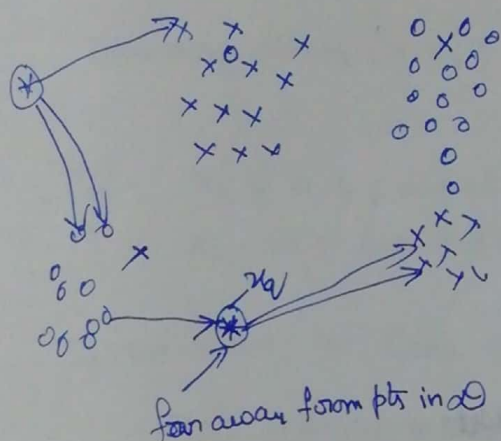 xq
far away from pts in D